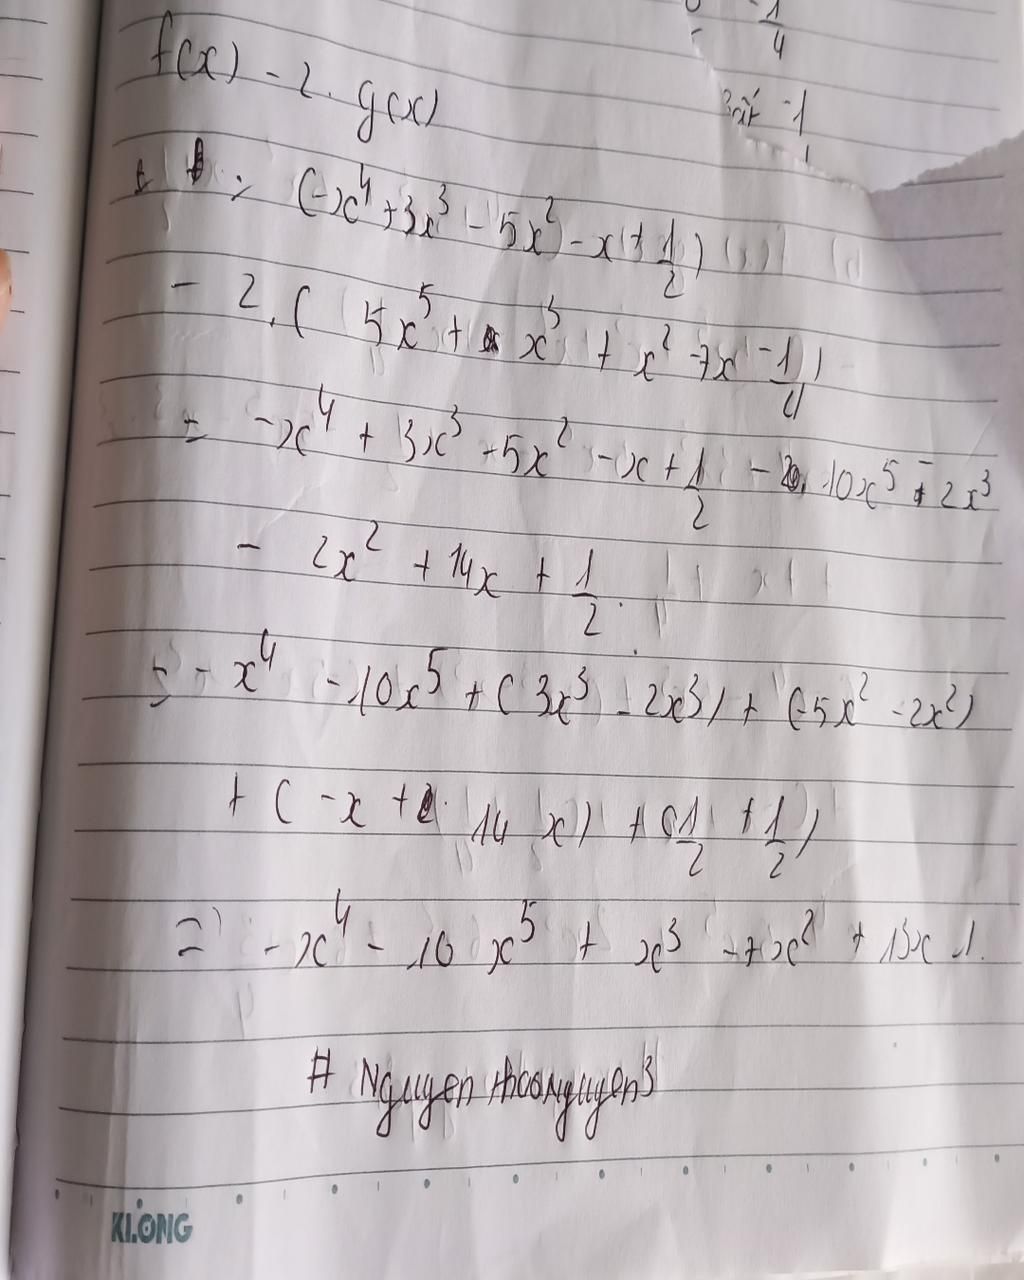 -1/4
f(x) - 2. g(x)
-1
(-x⁴ + 3x³ - 5x² - x + 1/2)
- 2. ( 5x⁵ + x³ + x² - 7x - 1/4 )
= -x⁴ + 3x³ - 5x² - x + 1/2 - 10x⁵ - 2x³
- 2x² + 14x + 1/2.
= - x⁴ - 10x⁵ + ( 3x³ - 2x³ ) + (-5x² - 2x²)
+ ( -x + 14 x ) + ( 1/2 + 1/2 )
= -x⁴ - 10 x⁵ + x³ - 7x² + 13x 1.
# Nguyen thaonguyen3
KLONG